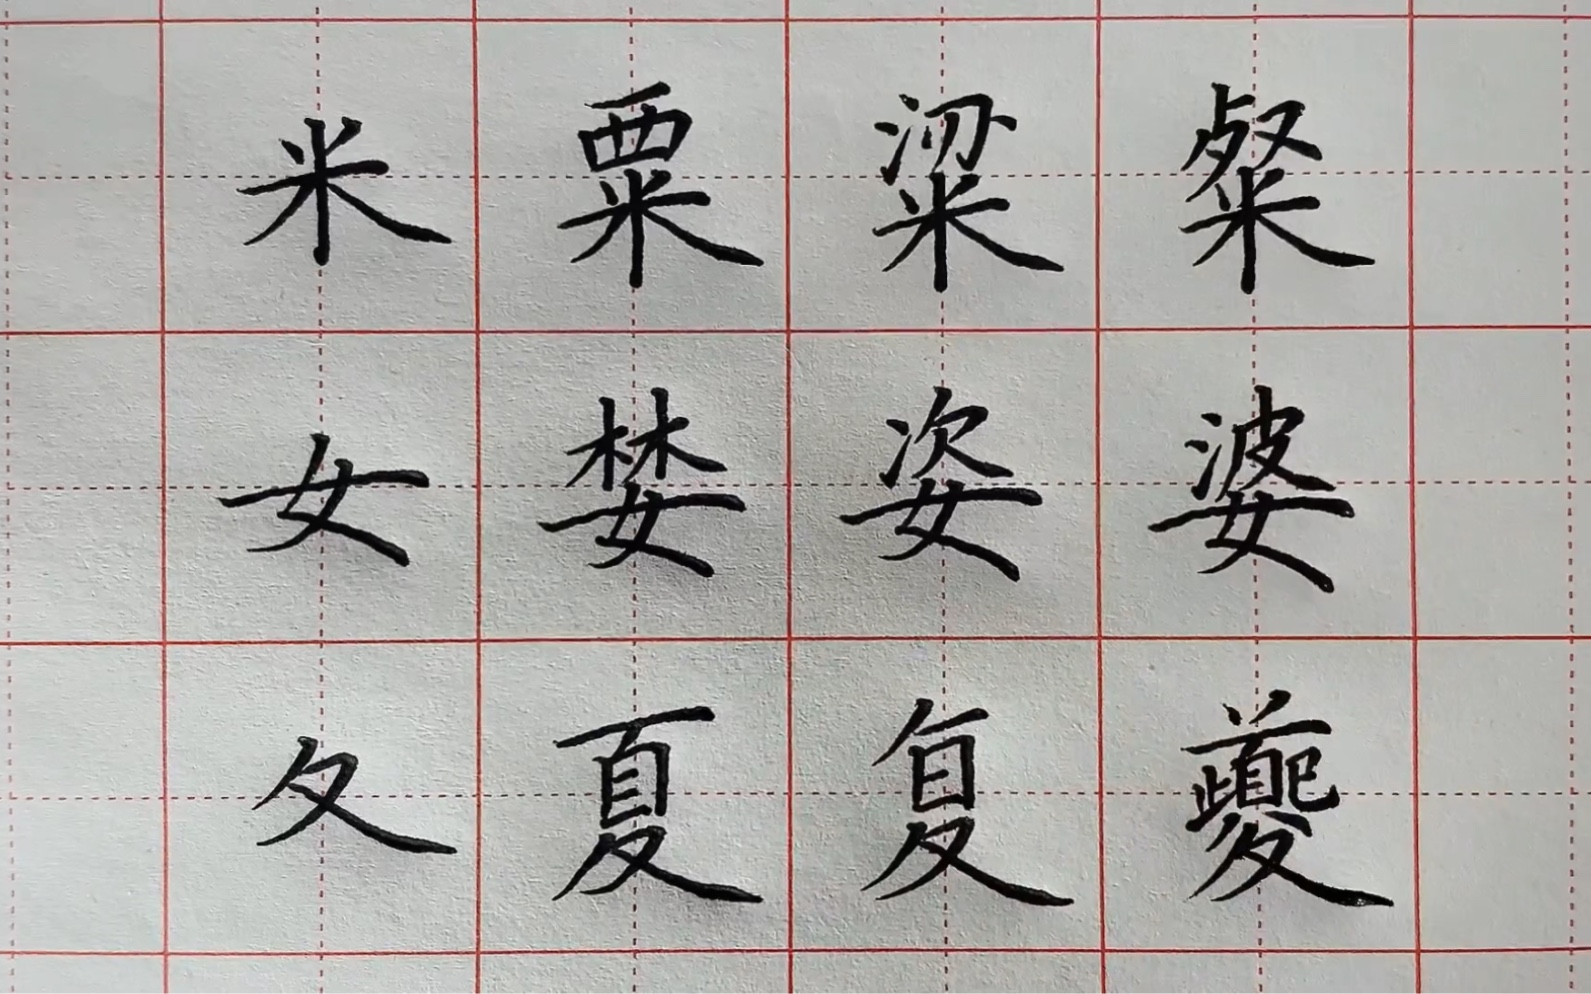 米 粟 粱 粲
女 婪 姿 婆
夂 夏 复 夔